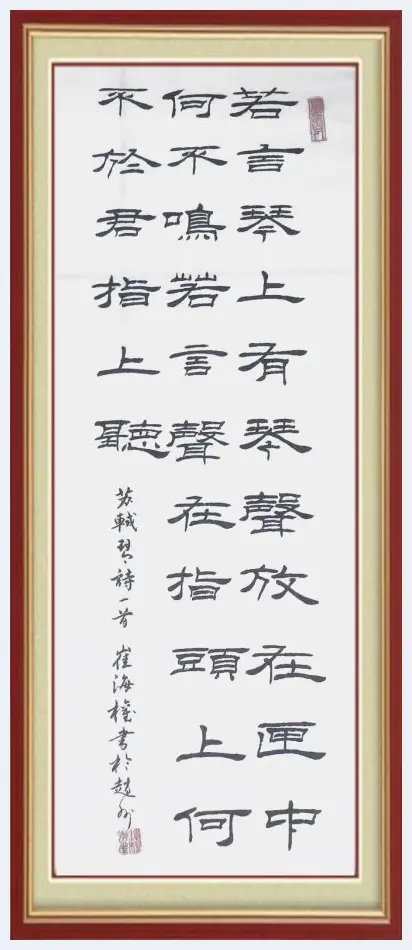 若言琴上有琴聲放在匣中
何不鳴若言聲在指頭上何
不於君指上聽
苏軾琴詩一首 崔海書於趙州